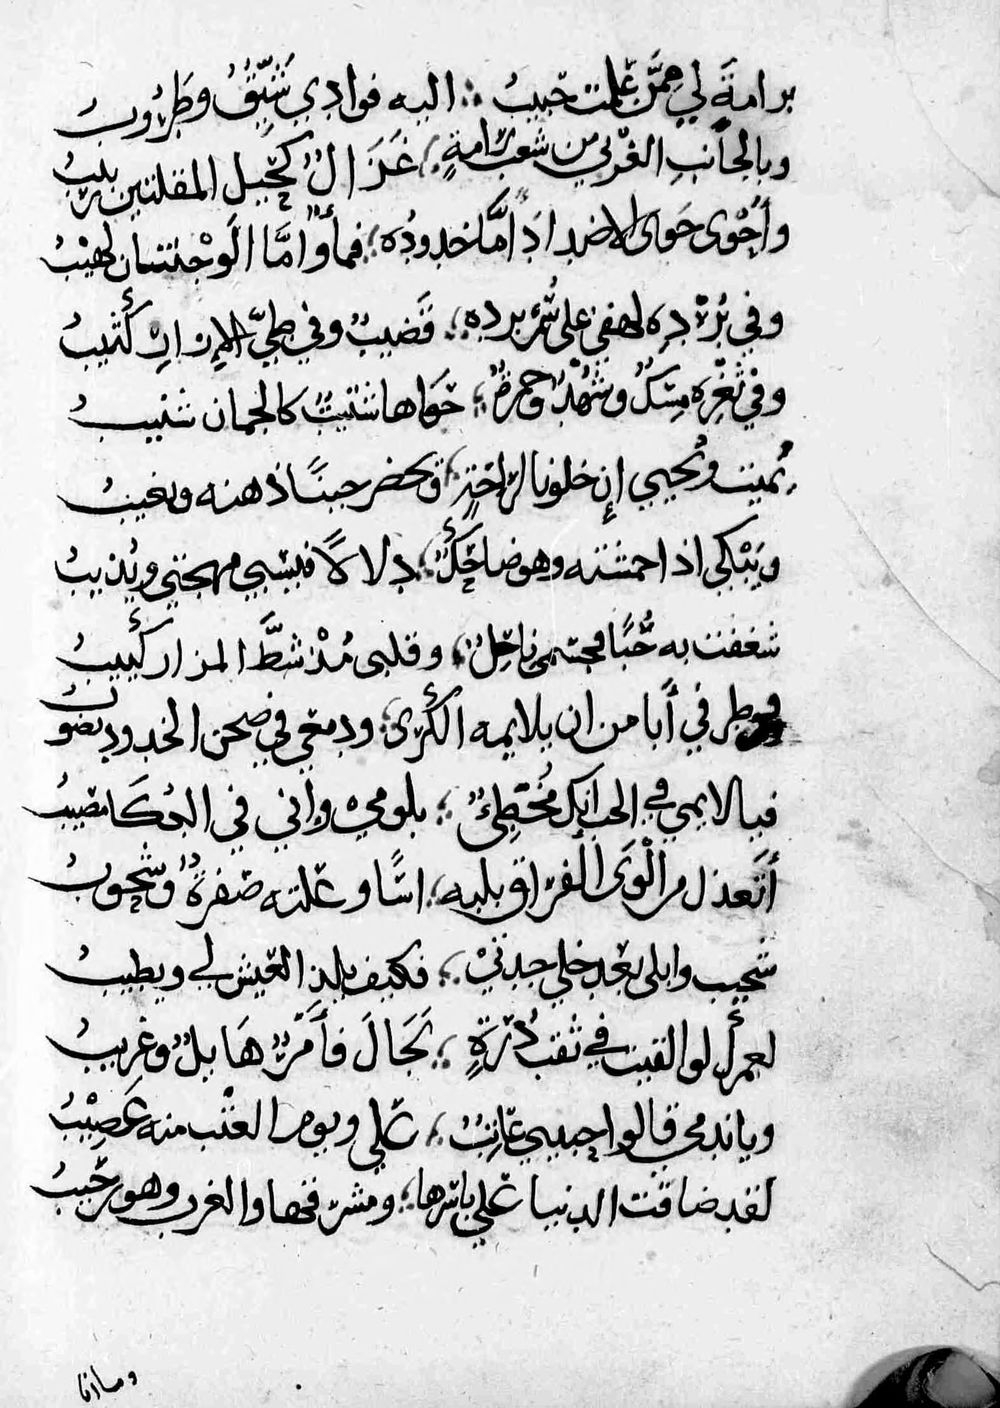 برامةَ لي ممَّن علمت حبيبُ ؛ اليه فوادي شيّقٌ وطَرُوبُ
وبالجانبِ الغربي من شعب رامةٍ ؛ غَزَالٌ كحيل المقلتين ربيبُ
وأَحْوى حَوى الاضدادَ أمَّا خدودُه ؛ فمأٌ وامَّا الوَجْنتان لهيْبُ
وفي بُرْدِه لهفي على بردِه ؛ قَضيبٌ وفي طيِّ الإزارِ كثيبُ
وفي ثغْرِه مِسْكٌ وشُهْدٌ وخمرةٌ ؛ حَوَاها شتيتٌ كالجمان شنيبُ
يُميت ويُحيي إن خلونا لراحَةٍ ؛ ويحضر حينًا ذهنه ويغيبُ
ويَبْكي اذا حمشته وهو ضاحكٌ ؛ دلالًا فيسبي مهجتي ويُذيبُ
شغفت به حُبًا فجسمي ناحِلٌ ؛ وقلبى مُذْ شطَّ المزار كئيبُ
وطرفي أَبا من ان يلايمه الكَرى ؛ ودمعي في صحن الخدود يصوبُ
فيا لايمي في الحب انك مُخطِئٌ ؛ بلومي واني في البُكَا مصيبُ
أَتَعذل من أَلْوَى الفراق بلبه ؛ اسًا وعلته صفرةٌ وشحوبُ
شحيب وابلى بعد خلي جدتيْ ؛ فكيف يلذ العيش لي ويطيبُ
لعمرك لو القيت في ثقب دُرَةٍ ؛ نَحَالَ فأَمْرٌ هَايلٌ وغريبُ
وياندمي قالوا حبيبي عاتبٌ ؛ علي ويوم العتْب منه عَصِيْبُ
لقد ضاقت الدنيا علي باسرها ؛ ومشرقها والغرب وهو رحيبُ
وما انا